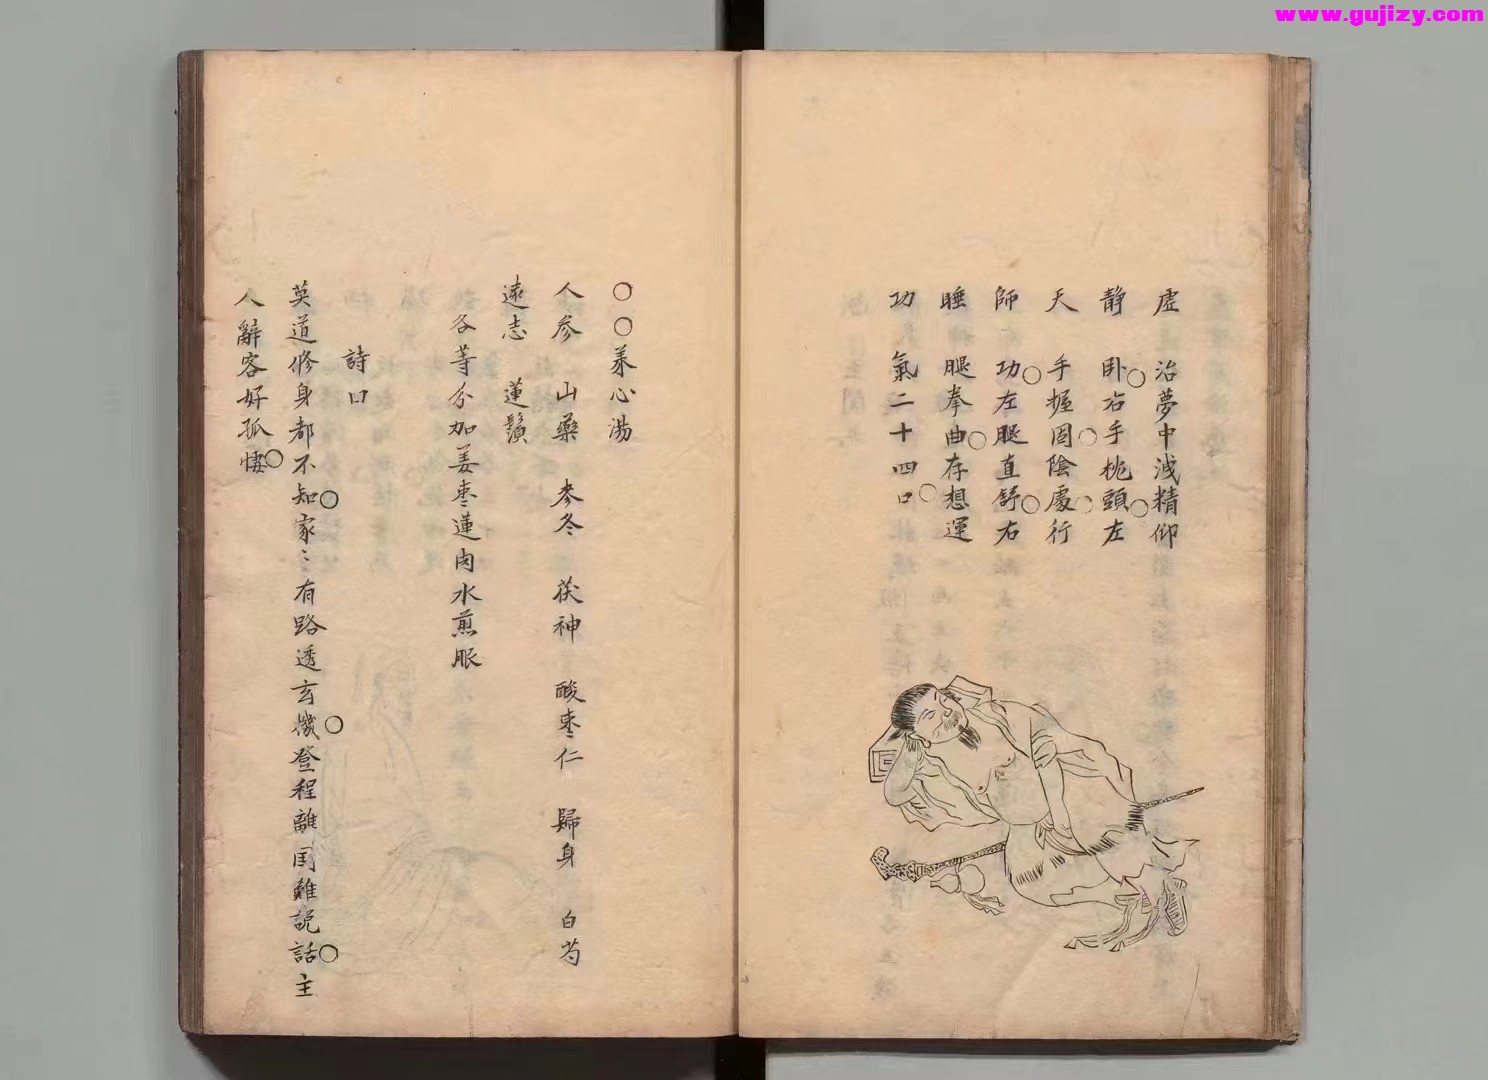 www.gujizy.com
虛　治夢中洩精仰
靜　卧○右手枕頭○左
天　手握固○陰處○行
師　功○左腿直舒○右
睡　腿拳曲○存想運
功　氣二十四口○
○○养心湯
人参　山藥　麥冬　茯神　酸枣仁　歸身　白芍
遠志　蓮鬚
各等分加姜枣蓮肉水煎服
詩曰
莫道修身都不知○家〻有路透玄機○登程離国難説話○主
人辭客好孤悽○